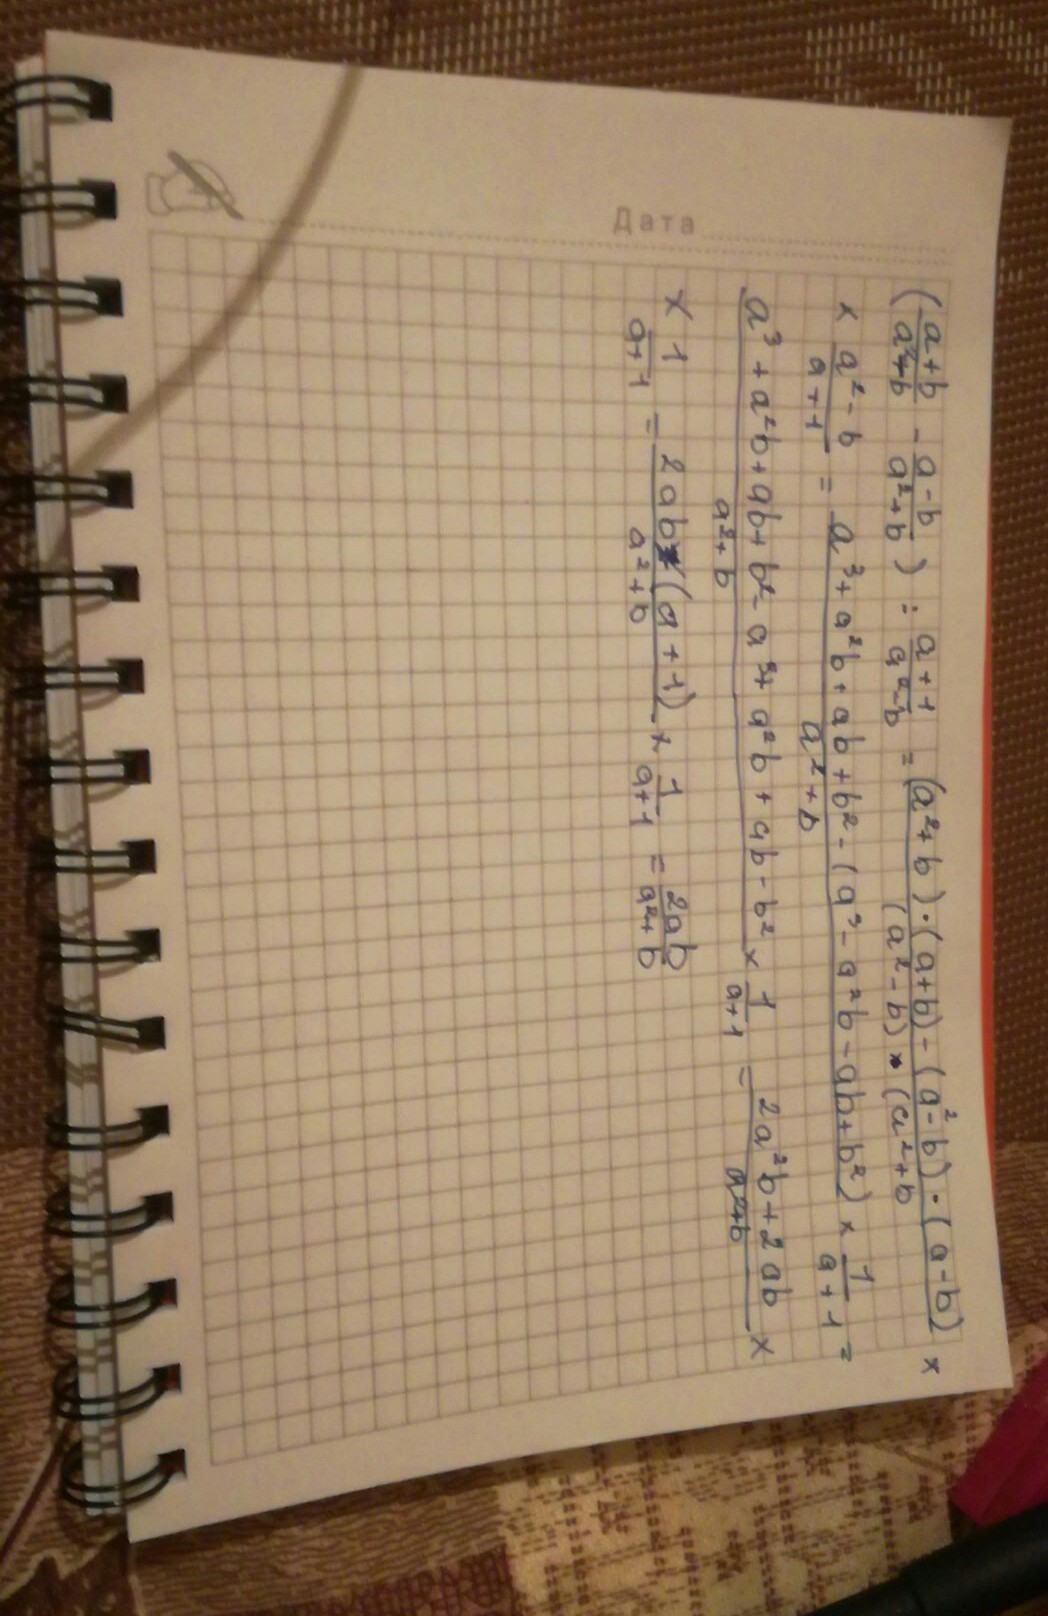 Дата
(a+b/a²+b - a-b/a²+b) : a+1/a²-b = (a²+b)·(a+b)-(a²-b)·(a-b)/(a²-b)·(a²+b ×
× a²-b/a+1 = a³+a²b+ab+b²-(a³-a²b-ab+b²)/a²+b × 1/a+1 =
a³+a²b+ab+b²-a³+a²b+ab-b²/a²+b × 1/a+1 = 2a²b+2ab/a²+b ×
× 1/a+1 = 2ab(a+1)/a²+b × 1/a+1 = 2ab/a²+b